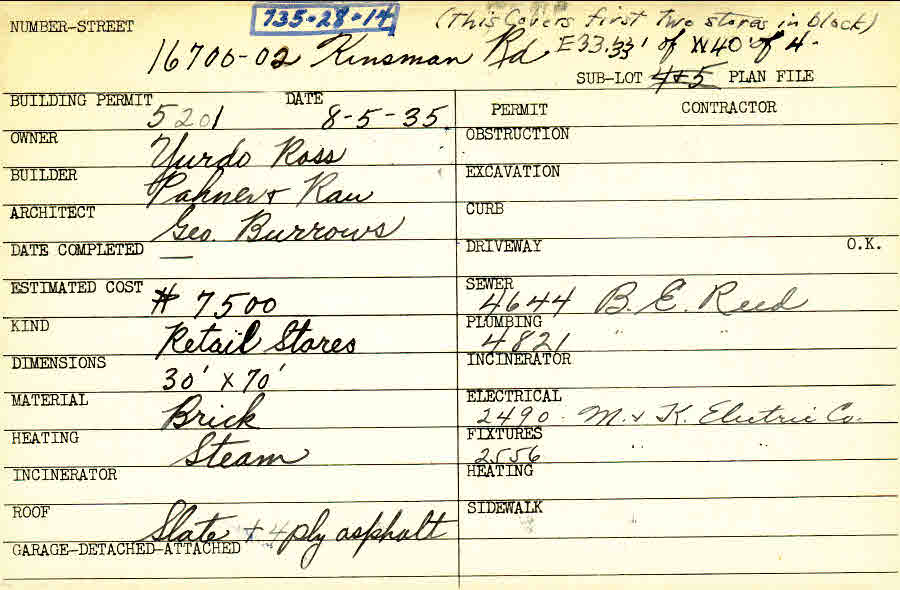 735-28-14 (This Covers first two stores in block)
NUMBER-STREET 16700-02 Kinsman Rd E33.33' of W40' of 4.
SUB-LOT 4+5 PLAN FILE
BUILDING PERMIT 5201 DATE 8-5-35
OWNER Yurdo Ross
BUILDER Pahner + Rau
ARCHITECT Geo. Burrows
DATE COMPLETED —
ESTIMATED COST # 7500
KIND Retail Stores
DIMENSIONS 30' x 70'
MATERIAL Brick
HEATING Steam
INCINERATOR
ROOF Slate + 4 ply asphalt
GARAGE-DETACHED-ATTACHED
PERMIT CONTRACTOR
OBSTRUCTION
EXCAVATION
CURB
DRIVEWAY O.K.
SEWER 4644 B. E. Reed
PLUMBING 4821 " "
INCINERATOR
ELECTRICAL 2490 - M. + K. Electric Co.
FIXTURES 2556 " "
HEATING
SIDEWALK